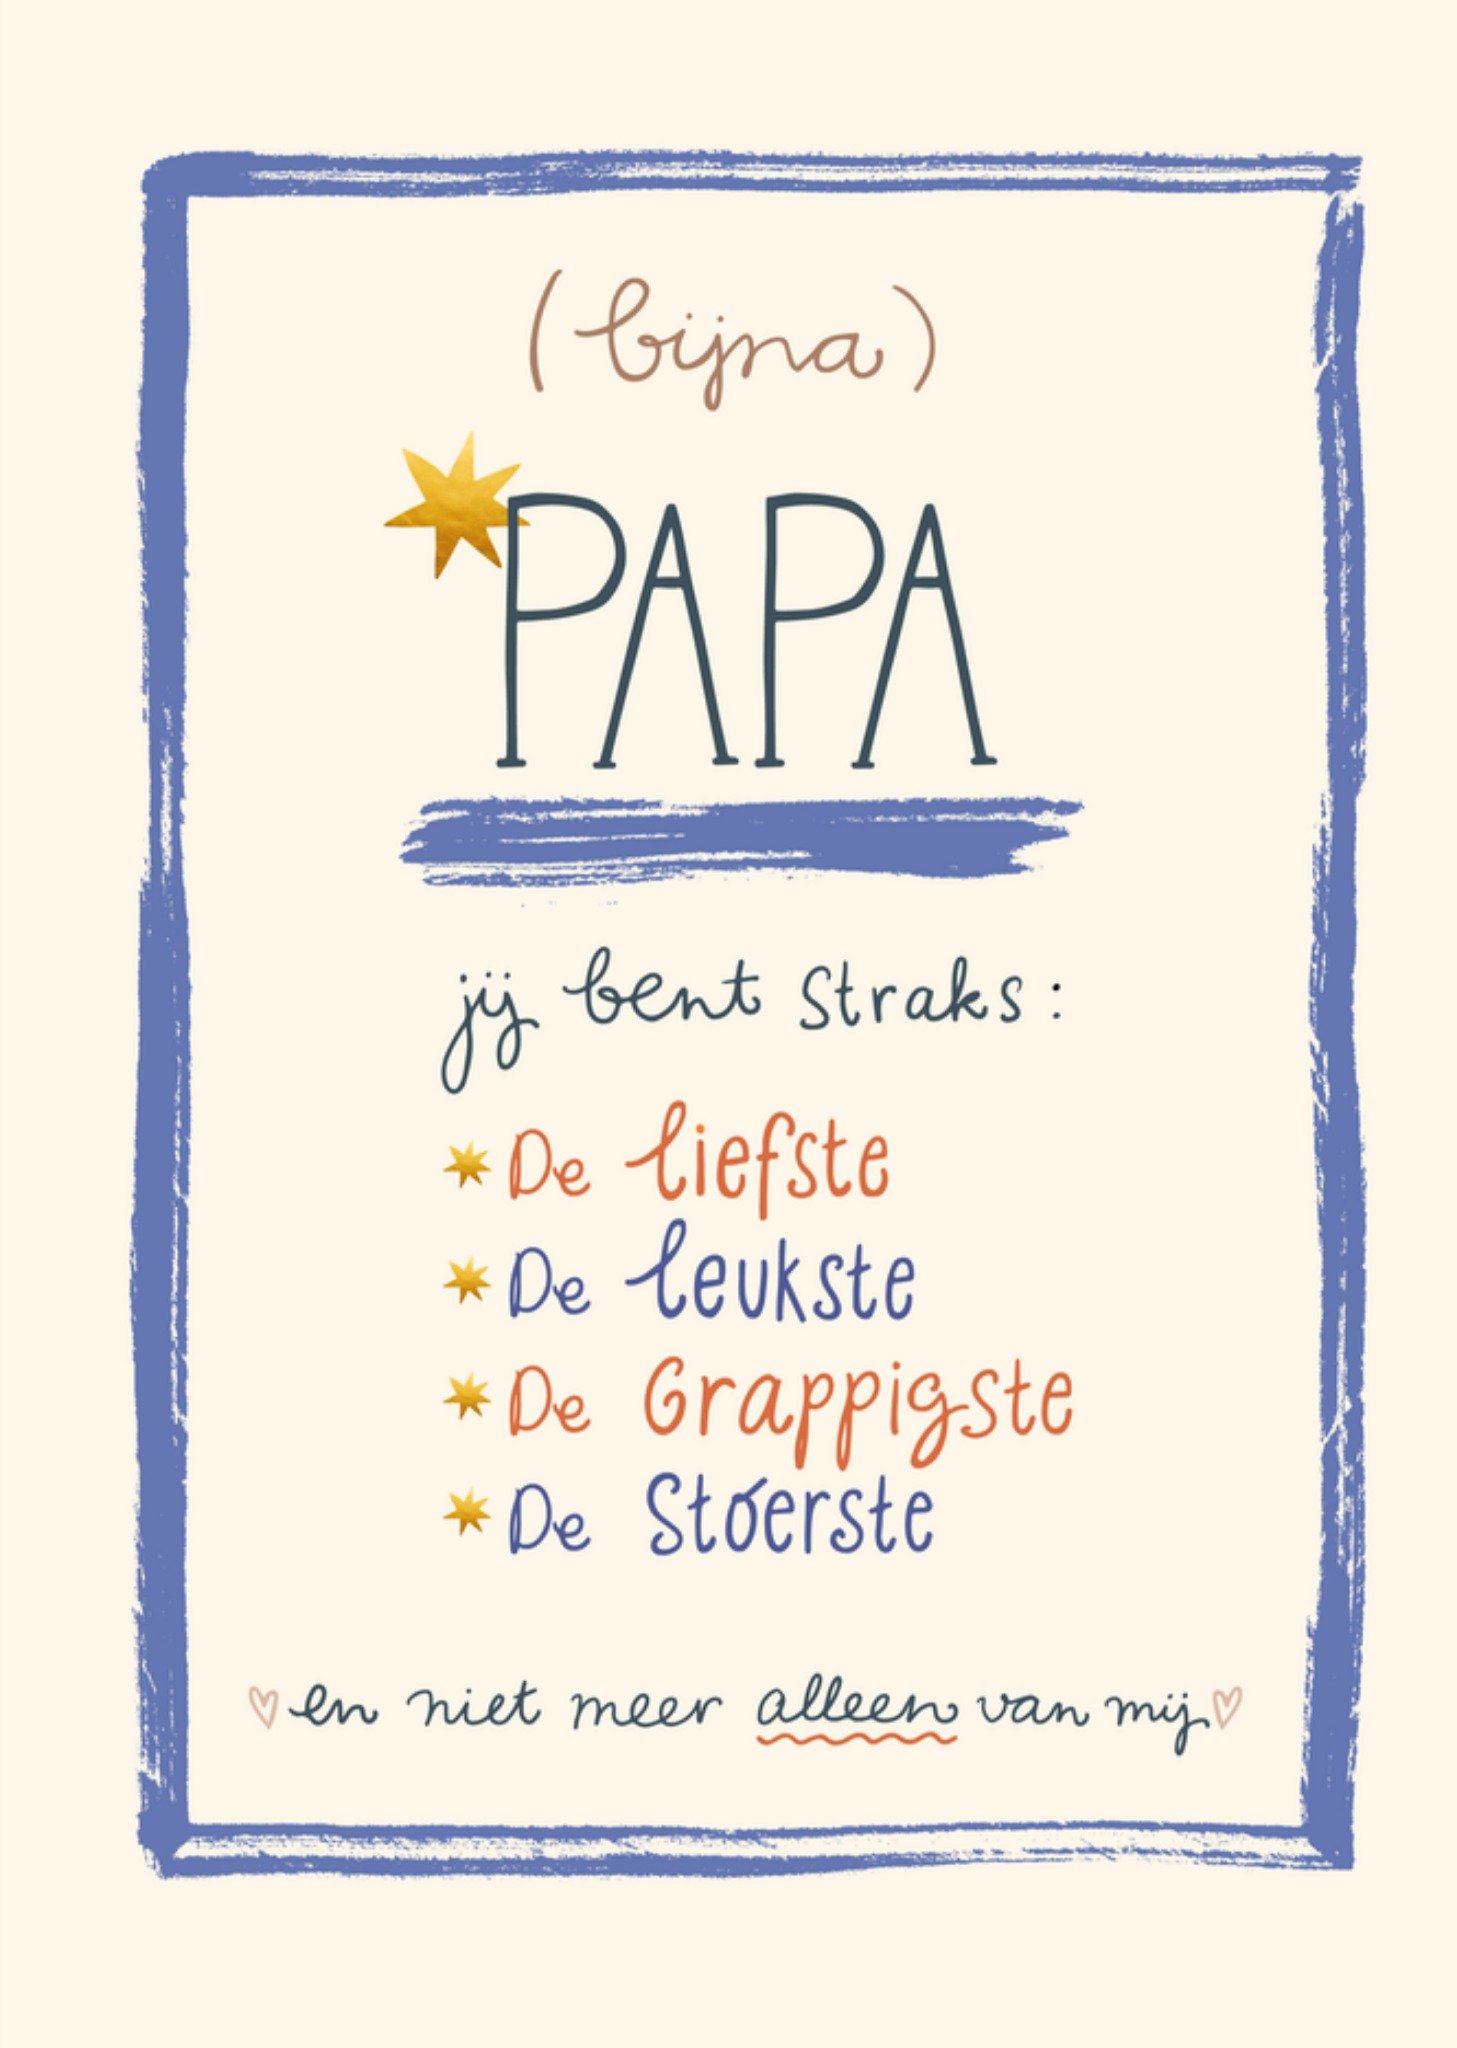 (bijna)
PAPA
jij bent straks:
De liefste
De leukste
De Grappigste
De Stoerste
en niet meer alleen van mij